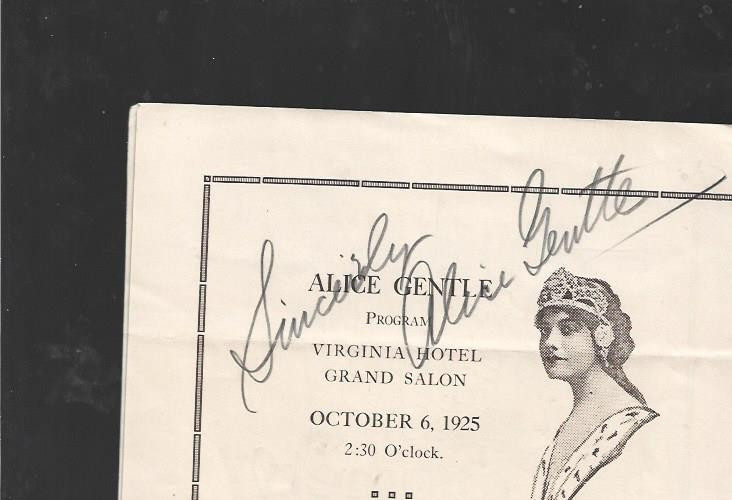 Sincerely Alice Gentle
ALICE GENTLE
PROGRAM
VIRGINIA HOTEL
GRAND SALON
OCTOBER 6, 1925
2:30 O'clock.